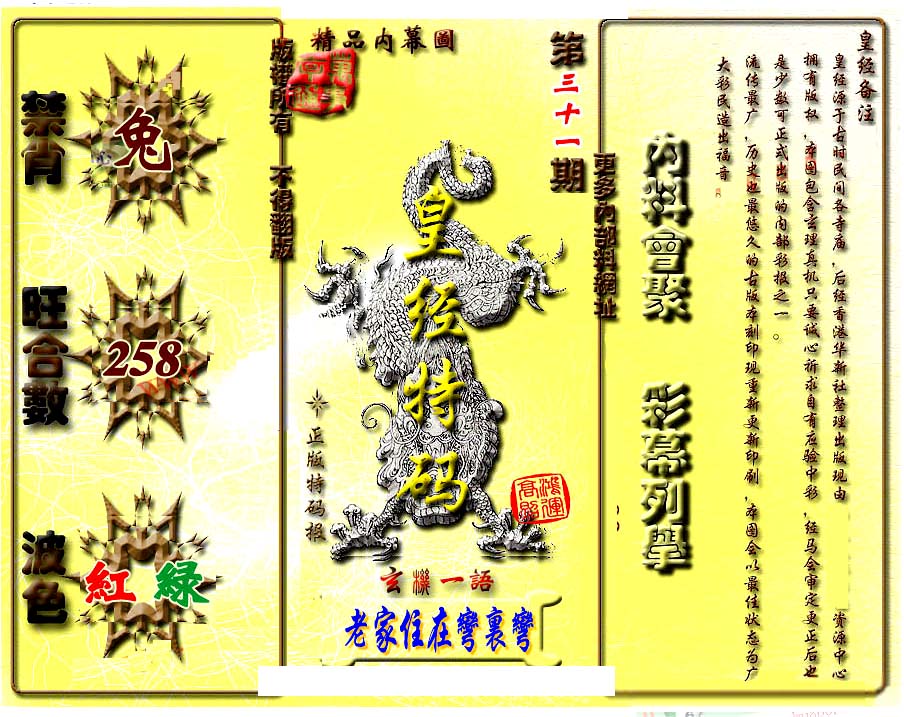 精品内幕圖
版權所有　不得翻版
第三十一期
更多內部料網址
禁肖
兔
旺合數
258
波色
紅 綠
皇经特码
正版特码报
鴻運高照
玄機一語
老家住在彎裏彎
內料會聚　彩幕列舉
皇经备注
皇经源于古时民间各寺庙，后经香港华新社整理出版现由　资源中心
拥有版权，本图包含玄理真机只要诚心祈求自有应验中彩，经马会审定更正后也
是少数可正式出版的内部彩报之一。
流传最广，历史也最悠久的古版本刻印现重新更新印刷，本图会以最佳状态为广
大彩民造出福音